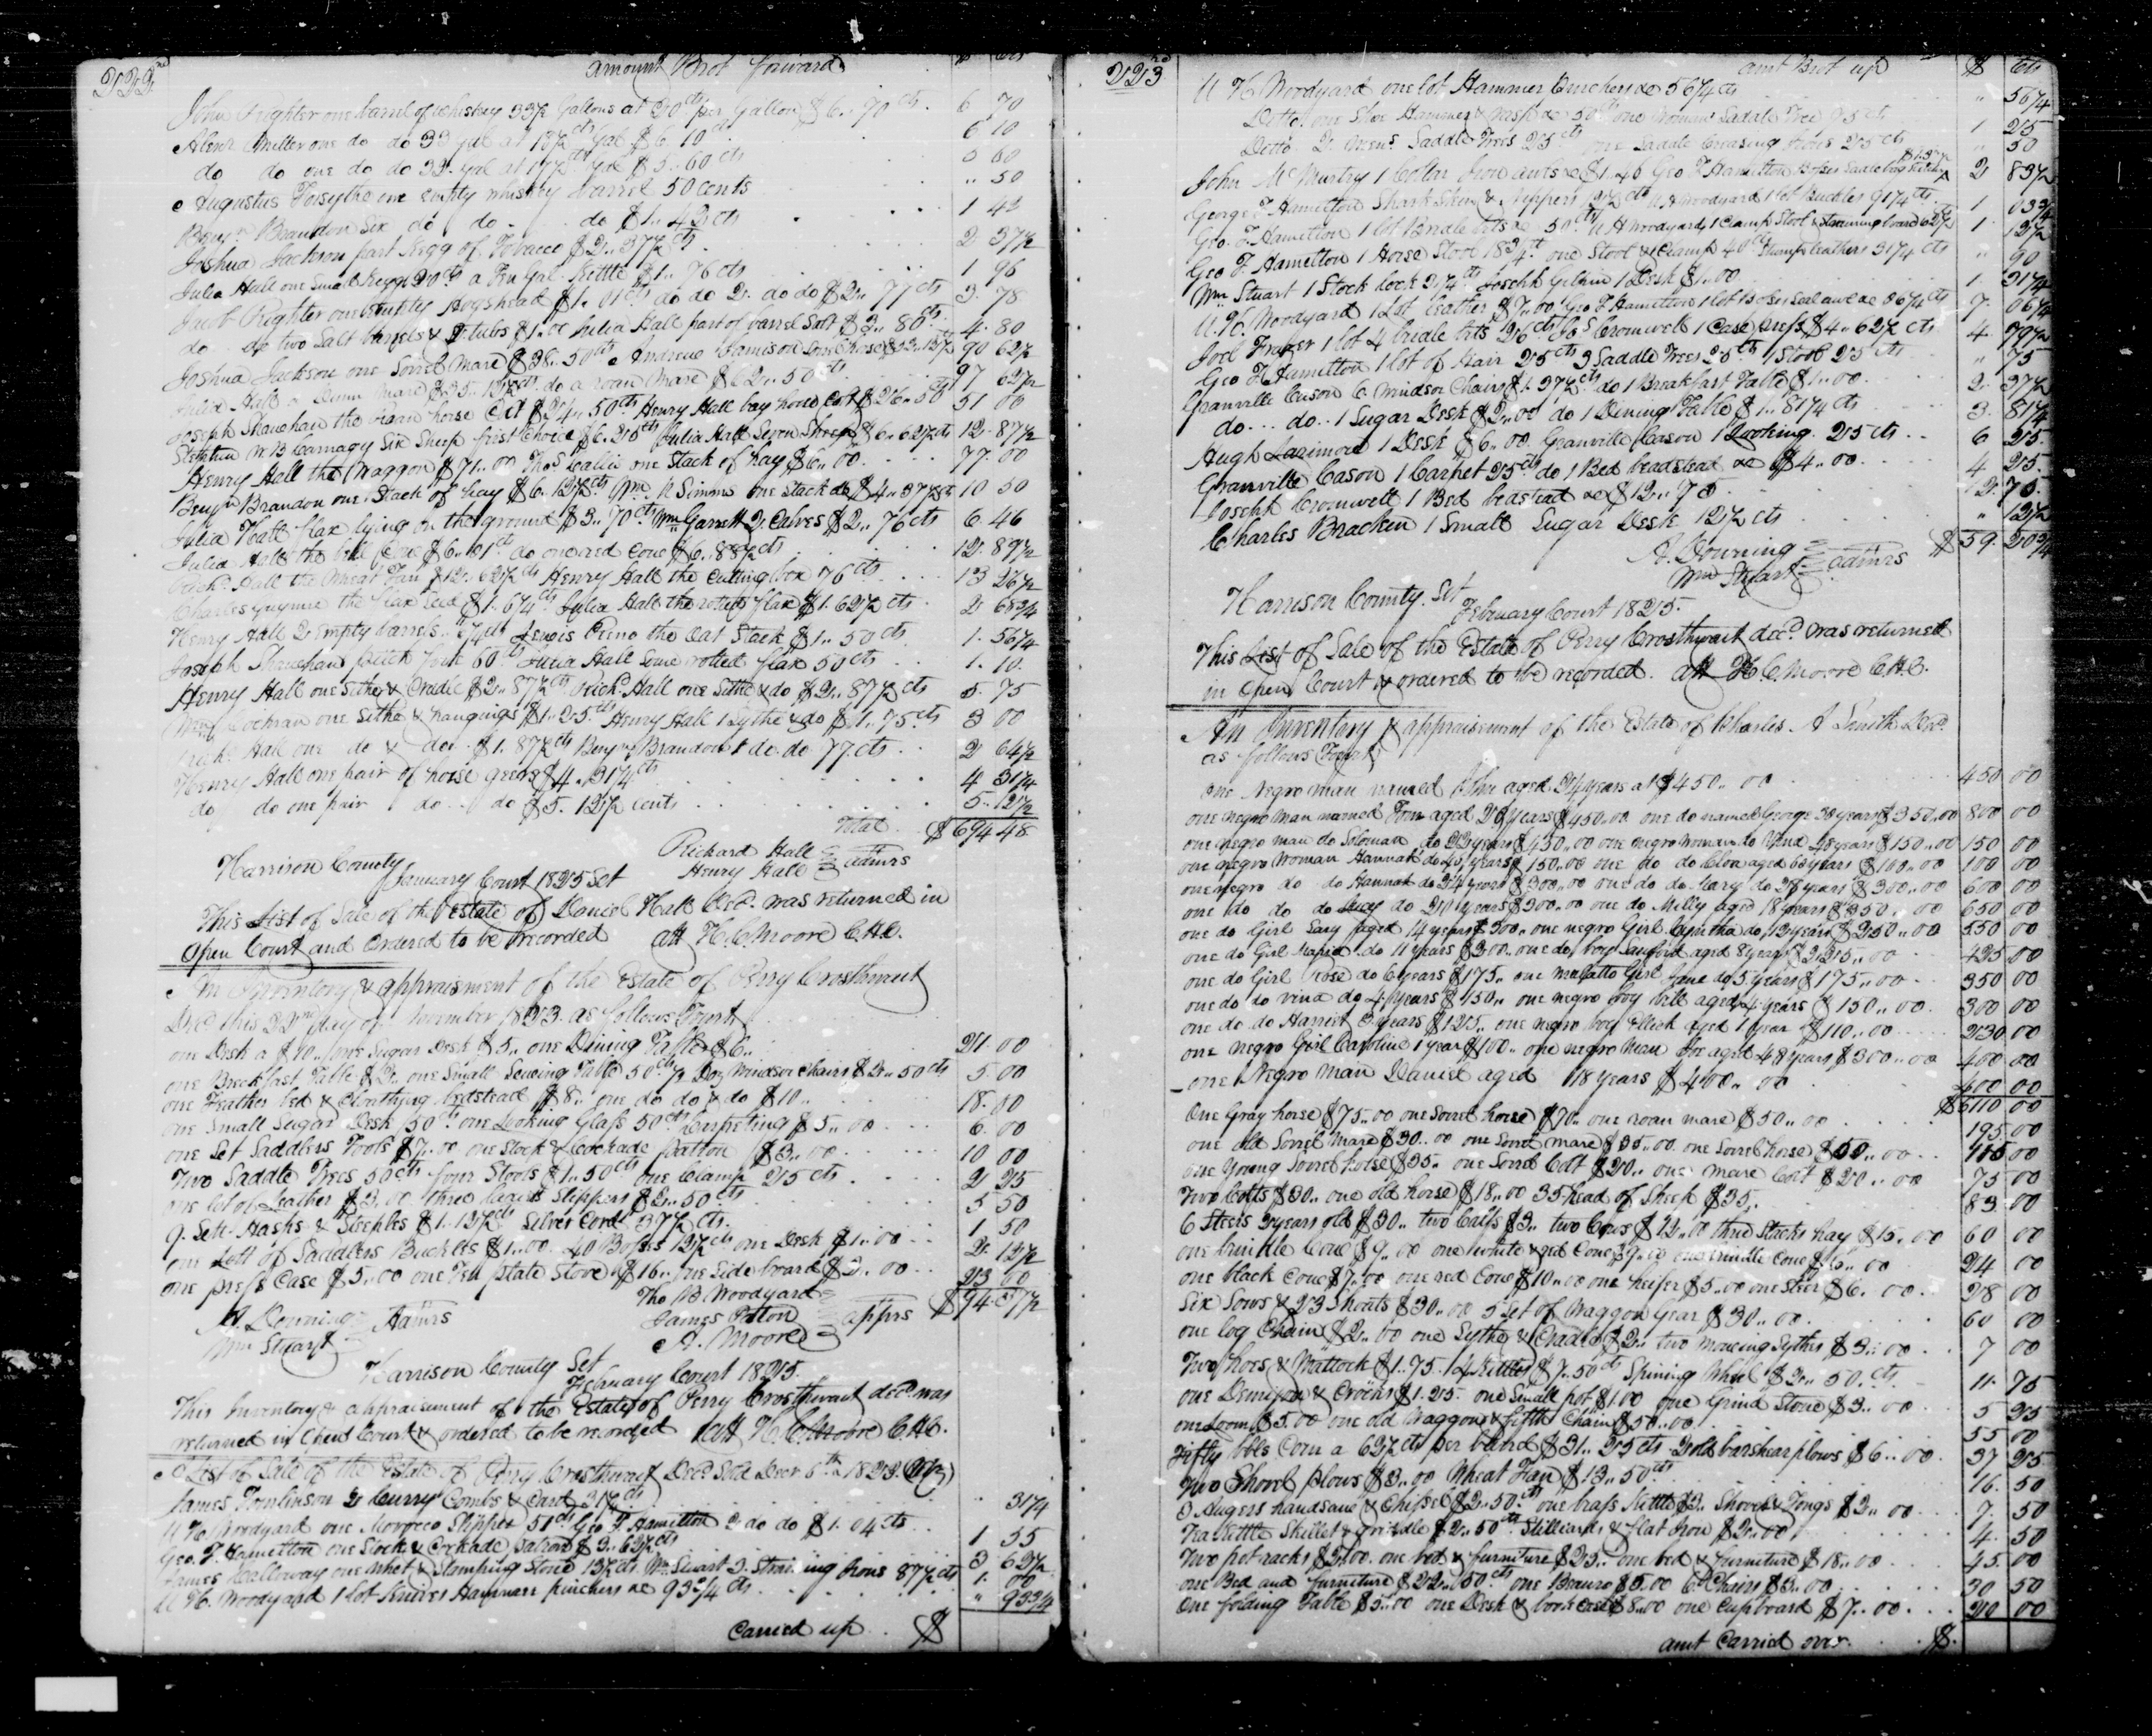 222nd
amount Brot forward $ cts
John Righter one barrel of whiskey 33½ gallons at 20cts per gallon $6..70cts. 6 70
Abner Miller one do do 33 gal at 18½cts gal $6.10cts 6 10
do do one do do 32 gal at 17½cts gal $5.60cts 5 60
Augustus Forsythe one empty whiskey barrel 50 cents .. 50
Benjn Brandon Six do do do $1..42cts 1 42
Joshua Jackson part kegg of Tobacco $2..37½cts 2 37½
Julia Hall one Small kegg 20cts a Ten gal. Kettle $1..76cts 1 96
Jacob Righter one empty Hogshead $1.01cts do do 2 do do $2..77cts 3. 78
do do two Salt barrels & 2 tubs $1.. Julia Hall part of barrel Salt $3..80cts 4. 80
Joshua Jackson one Sorrel Mare $38..50cts Andrew Jamison Sorrel horse $52..12½ 90 62½
Julia Hall a Dunn Mare $35..12½cts do a roan Mare $62..50cts 97 62½
Joseph Shanehan the Roan horse Colt $24..50cts Henry Hall bay horse Colt $26..50cts 51 00
Stephen M B Carnagy Six Sheep first Choice $6.25cts Julia Hall Seven Sheep $6..62½cts 12. 87½
Henry Hall the Waggon $71..00 Thos. one Stack of hay $6..00. 77. 00
Benjn Brandon one Stack of hay $6.12½cts Wm M Simms one stack do $4..37½cts 10 50
Julia Hall flax lying on the ground $3..70cts Wm Garrett 2 Calves $2..76cts 6. 46
Julia Hall the bell Cow $6..01ct do one red Cow $6..88½cts 12. 89½
Richd. Hall the Wheat Fan $12..62½cts Henry Hall the Cutting box 76cts 13 26½
Charles the flax Seed $1.6¼cts Julia Hall the rotted flax $1.62½cts. 2 68¾
Henry Hall 2 empty barrels 6¼cts the Oat Stack $1..50cts 1. 56¼
Joseph Shanehan pitch fork 60cts Julia Hall Some rotted flax 50cts 1. 10.
Henry Hall one Sithe & Cradle $2..87½cts Richd Hall one Sithe & do $2..87½cts 5. 75
Wm Cochran one Sithe & hangings $1..25cts Henry Hall 1 Sythe & do $1..75cts 3 00
Richd. Hall one do & do $1.87½cts Benjn Brandon 1 do. do 77cts 2 64½
Henry Hall one pair of horse geers $4..31¼cts 4 31¼
do do one pair do do $5.12½ cents 5.. 12½
Total $694 48
Richard Hall
Henry Hall admrs
Harrison County
January Court 1825 Set
This List of Sale of the Estate of Daniel Hall Decd. was returned in
Open Court and Ordered to be Recorded att H. C Moore C.H.C.
An Inventory & appraisment of the Estate of Perry Crosthwait
Decd this 22nd day of November 1823. as follows Towit
one Desk a $10.. one Sugar Desk $5.. one Dining Table $6.. 21 00
one Breakfast Table $2.. one Small Sewing Table 50cts ½ Doz Windsor Chairs $2..50cts 5 00
one Feather bed & Cloathing bedstead $8.. one do do & do $10.. 18. 00
one Small Sugar Desk 50cts one Looking Glass 50cts Carpeting $5..00 6. 00
one Set Saddlers Tools $7..00 one Stock & Cockade patton $3..00 10 00
Two Saddle Trees 50cts four Stools $1..50cts one Clamp 25cts 2 25
one lot of Leather $3.00 three Slippers $2..50cts 5 50
9. Sett Hasps & Steeples $1..12½cts Silver Cord 37½cts. 1 50
one Lott of Saddlers Buckles $1..00. 40 Bosses 12½cts one Desk $1..00 2. 12½
one press Case $5..00 one Ten plate Stove $16.. one Side board $2..00 23 00
Tho B. Woodyard
James Patton apprs $94.37½
A. Moore
A. Downing
Wm Stuart Admrs
Harrison County Set
February Court 1825
This Inventory & appraisement of the Estate of Perry Crosthwait decd. was
returned in Open Court & ordered to be recorded att H. C. Moore C.H.C.
A List of Sale of the Estate of Perry Crosthwait Decd Sold Decr 5th 1823
James Tomlinson 2 Curry Combs & Card 31¼cts 31¼
U H. Woodyard one Morocco Slipper 51cts Geo F Hamilton 2 do do $1.04cts 1 55
Geo. F. Hamilton one Stock & Cockade patron $3..62½cts 3 62½
James Calloway one whet & Stamping Stone 12½cts Wm Stuart 2. Straining Irons 87½cts 1. 00
U H. Woodyard 1 lot Knives Hammers pinchers &c 93¾cts .. 93¾
Carried up $
223rd
amt Brot up $ Cts
U H. Woodyard one lot Hammer Pinchers &c 56¼cts .. 56¼
Ditto one Shoe Hammer & rasp &c 50cts one Womans Saddle Tree 75cts 1 25
Ditto 2 Mens Saddle Trees 25cts one Saddle Creasing Irons 25cts .. 50
John McMurtry 1 Collar Iron awls &c $1.46 Geo F Hamilton Bosses Saddle bag $1.37½ 2 83½
George F Hamilton Shark Skin & nippers 12½cts U H Woodyard 1 lot Buckles 91¼cts 1 03¾
Geo. F. Hamilton 1 lot Bridle bits &c 50cts U H Woodyard 1 Clamp Stool & Straining board 62½ 1. 12½
Geo F. Hamilton 1 Horse Stool 18¾ct one Stool & Clamp 40ct Stamps leathers 31¼cts .. 90
Wm Stuart 1 Stock lock 31¼cts Joseph 1 Desk $1..00 1. 31¼
U. H. Woodyard 1 Lot leather $7..00 Geo F Hamilton 1 lot Bosses Seal awl &c 6¼cts 7. 06¼
Joel Frazer 1 lot 4 bridle bits 26cts Cromwell 1 Case press $4..62½cts 4. 79½
Geo F Hamilton 1 lot of Hair 25cts 3 Saddle Trees 25cts 1 Stool 25cts .. 75
Granville Cason 6 Windsor Chairs $1.37½cts do 1 Breakfast Table $1..00 2. 37½
do do 1 Sugar Desk $2..00 do 1 Dining Table $1..81¼cts 3. 81¼
Hugh Larimore 1 Desk $6..00 Granville Cason 1 Looking 25cts 6 25.
Granville Cason 1 Carpet 25cts do 1 Bed beadstead &c $4..00 4 25.
Joseph Cromwell 1 Bed beastead &c $12..75 12. 75.
Charles Bracken 1 Small Sugar Desk 12½cts .. 12½
$59. 20¾
A. Downing
Wm Stuart admrs
Harrison County. Set
February Court 1825.
This List of Sale of the Estate of Perry Crosthwait decd was returned
in Open Court & ordered to be recorded. att H. C. Moore C.H.C.
An Inventory & appraisement of the Estate of Charles A Smith Decd.
as follows Towit
One Negro man named John aged 24 years at $450..00 450 00
one negro man named Tom aged 29 years $450.00 one do named George 38 years $350..00 800 00
one negro man do Soloman do 22 years $450..00 one negro woman do Vina 48 years $150..00 150 00
one negro Woman Hannah do 45 years $150.00 one do do Cloa aged 60 years $100..00 100 00
one negro do do Hannah do 24 years $300..00 one do do Mary do 27 years $300..00 600 00
one do do do Lucy do 20 years $300..00 one do Milly aged 18 years $350..00 650 00
one do Girl Lucy aged 14 years $300.. one negro Girl Cyntha do 13 years $250..00 550 00
one do Girl Maria do 11 years $200.. one do boy Sanford aged 8 years $225..00 425 00
one do Girl rose do 6 years $175.. one mulatto Girl Jane do 5 years $175..00 350 00
one do do vina do 4 years $150.. one negro boy bill aged 4 years $150..00 300 00
one do do Harriet 3 years $125.. one negro boy Ellick aged 1 year $110..00 230 00
one negro Girl Caroline 1 year $100.. one negro man Joe aged 48 years $300..00 400 00
one Negro man Daniel aged 18 years $400..00 400 00
$6110 00
One Gray horse $75..00 one Sorrel horse $70.. one roan mare $50..00 195 00
one old Sorrel Mare $30..00 one Sorrel mare $35..00 one Sorrel horse $50..00 115 00
one Young Sorrel horse $35.. one Sorrel Colt $20.. one mare Colt $20..00 75 00
Two Colts $30.. one old horse $18..00 35 head of Sheep $35. 83 00
6 Steers 2 years old $30.. two Calfs $3.. two Cows $12..00 three Stacks hay $15..00 60 00
one brinkle Cow $9..00 one white & red Cow $9..00 one brinkle Cow $6..00 24 00
one black Cow $7..00 one red Cow $10..00 one heifer $5..00 one Steer $6..00. 28 00
Six Sows & 23 Shoats $30..00 a Set of Waggon gear $30..00. 60 00
one log Chain $2..00 one Sythe & Cradle $2.. two mowing Sythes $3..00 7 00
Two hoes & Mattock $1..75. 4 Kittles $7.50cts Spining Wheel $2..50.cts. 11. 75
one Demijon & Crocks $1.25 one Small pot $1.00 one Grind Stone $3..00 5 25
one Loom $5.00 one old Waggon & fifth Chain $50..00 55 00
Fifty bbls Corn a 62½cts per barrel $31..25cts 2 old barshear plows $6..00. 37 25
Two Shovel plows $3..00 Wheat Fan $13..50cts 16. 50
3 Augers handsaw & Chissel $2..50cts one brass Kittle $3.. Shovel & Tongs $2..00 7. 50
Tea Kettle Skillet & Griddle $2..50cts Stilliards & flat Iron $2..00 4. 50
Two pot racks $2.00. one bed & furniture $25.. one bed & Furniture $18..00 45. 00
one Bed and furniture $22..50cts one Beauro $5.00 6 Chairs $3..00 30 50
One folding Table $5..00 one Desk & book case $8.00 one Cupboard $7..00. 20 00
amt Carried over. $.